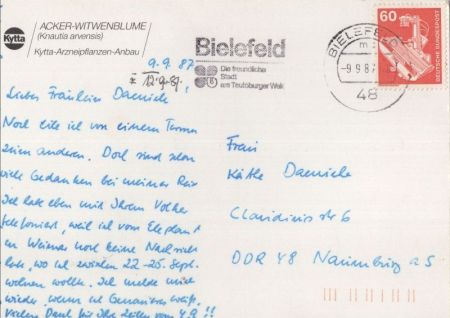 Kytta
ACKER-WITWENBLUME
(Knautia arvensis)
Kytta-Arzneipflanzen-Anbau
9.9.87
12.9.87.
Bielefeld
Die freundliche
Stadt
am Teutoburger Wald
BIELEFELD
-9.9.87
48
60
DEUTSCHE BUNDESPOST
Liebes Fräulein
Noch eile ich von einem Termin
zum anderen. Doch sind schon
viele Gedanken bei meiner
Ich habe eben mit Ihrem Vater
telefoniert, weil ich vom Elephant
in Weimar noch keine Nachricht
habe, wo ich zwischen 22.-26. Sept.
wohnen sollte. Ich melde mich
wieder, wenn ich Genaueres weiß.
Vielen Dank für Ihre Zeilen vom 4.9.!!
Frau
Käthe
Claudiusstr 6
DDR 48 Naumburg a S